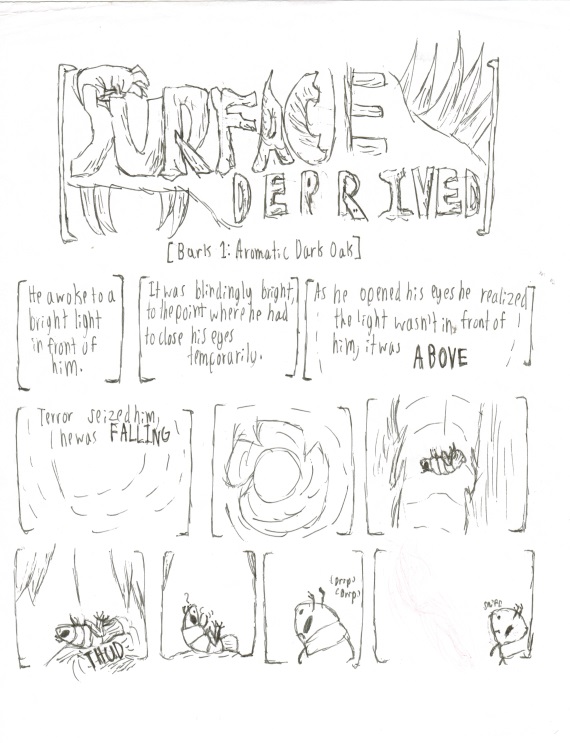 SURFACE
DEPRIVED
[Bark 1: Aromatic Dark Oak]
He awoke to a
bright light
in front of
him.
It was blindingly bright,
to the point where he had
to close his eyes
temporarily.
As he opened his eyes he realized
the light wasn't in front of
him, it was ABOVE
Terror seized him,
he was FALLING
THUD
?
(Drop)
(Drop)